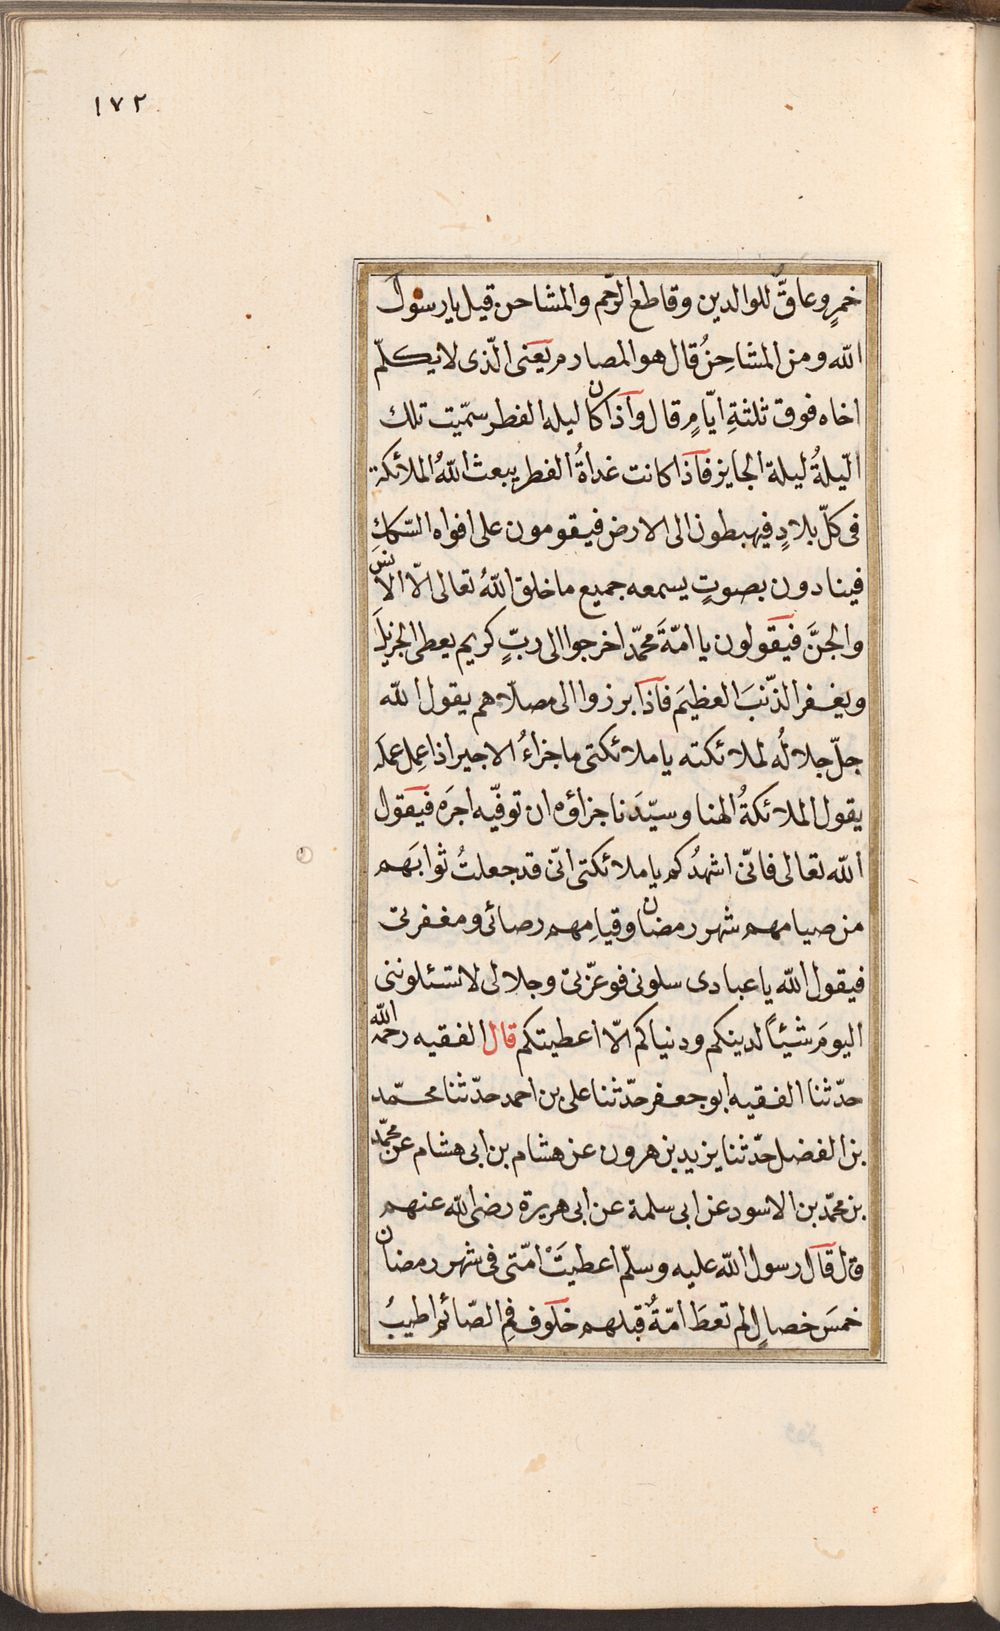 ١٧٢
خمرٍ وعاقٌّ للوالدين وقاطع الرّحم والمشاحن قيل يا رسول
الله ومن المشاحِنُ قال هو المصارم يعنى الّذى لا يكلّم
اخاه فوق ثلثةِ ايّامٍ قال واذا كان ليله الفطر سمّيت تلك
الّيلةُ ليلة الجايز فاذا كانت غداةُ الفطر يبعث اللهُ الملائكة
فى كلّ بلادٍ فيهبطون الى الارض فيقومون على افواه السّكك
فينادون بصوتٍ يسمعه جميع ما خلق اللهُ تعالى الّا الانسَ
والجنَّ فيقولون يا امّةَ محمّد اخرجوا الى ربٍّ كريم يعطى الجزيلَ
ويغفر الذّنبَ العظيمَ فاذا برزوا الى مصلّاهم يقول الله
جلّ جلالُه لملائكته يا ملائكتى ما جزاءُ الاجير اذا عمِل عمله
يقول الملائكةُ الهنا وسيّدَنا جزاؤه ان توفّيه اجرَه فيقول
الله تعالى فانّى اشهدُكم يا ملائكتى انّى قد جعلتُ ثوابَهم
من صيامهم شهر رمضان وقيامِهم رضائى ومغفرتى
فيقول الله يا عبادى سلونى فوعزّتى وجلالى لا تسئلوننى
اليومَ شيئاً لدينكم ودنياكم الّا اعطيتكم قال الفقيه رحمه الله
حدّثنا الفقيه ابو جعفر حدّثنا على بن احمد حدّثنا محمّد
بن الفضل حدّثنا يزيد بن هرون عن هشام بن ابى هشام عن محمّد
بن محمّد بن الاسود عن ابى سلمة عن ابى هريرة رضى الله عنهم
قال قال رسول الله عليه وسلّم اعطيَتْ امّتى فى شهر رمضان
خمسَ خصالٍ لم تعطَ امّةٌ قبلهم خلوف فمِ الصّائم اطيبُ